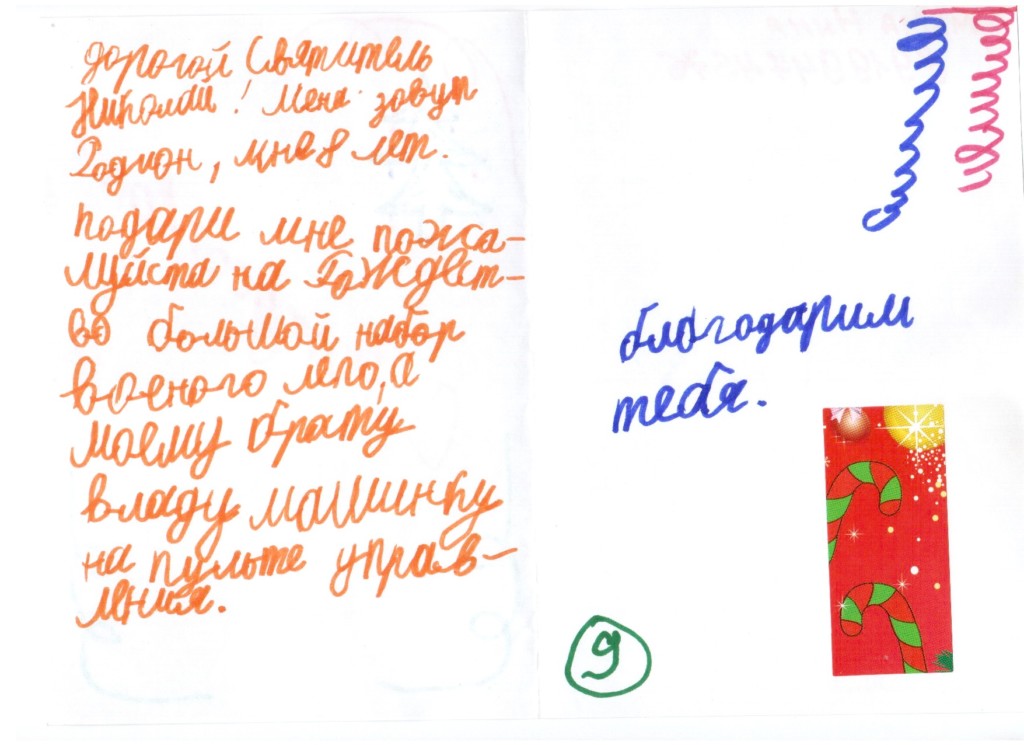 дорогой Святитель
Николай! Меня зовут
Родион, мне 8 лет.
подари мне пожа-
луйста на Рождест-
во большой набор
военого лего, а
моему брату
владу машинку
на пульте управ-
ления.
благодарим
тебя.
9